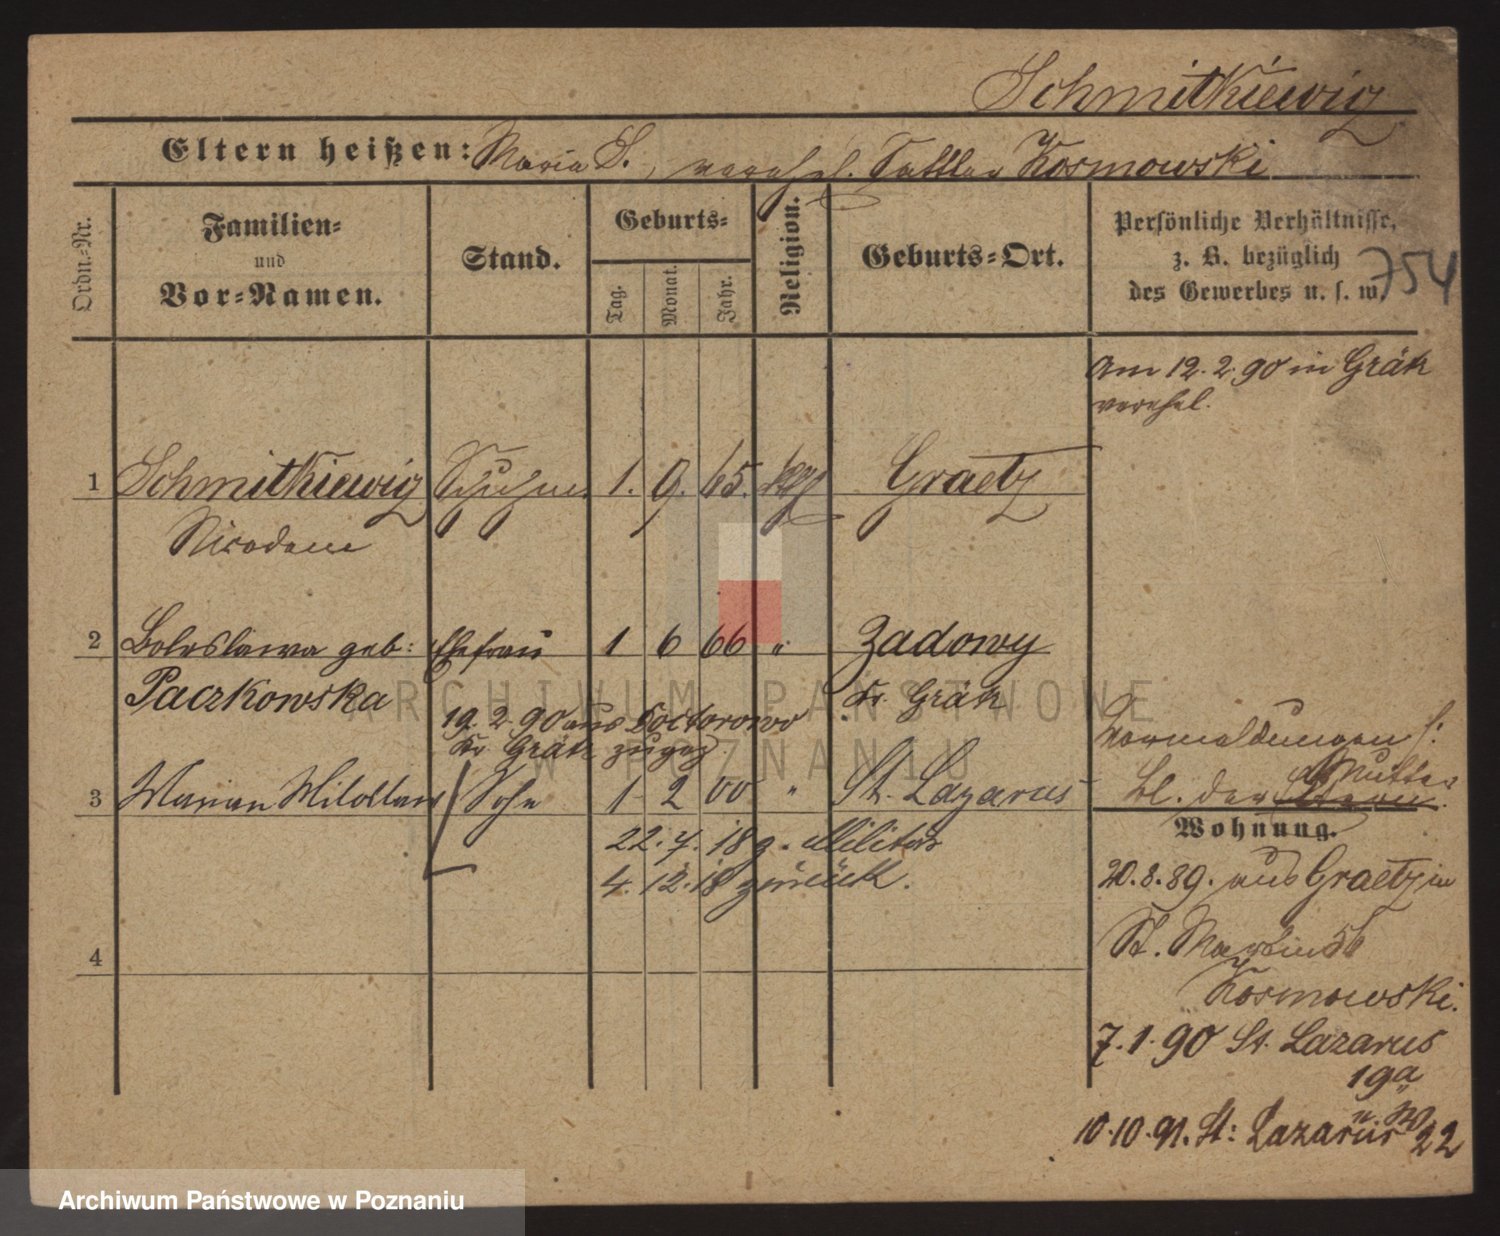 Schmitkiewicz
Eltern heißen: Maria S., verehel. Sattler Kosmowski
Ordn.-Nr.
Familien-
und
Vor-Namen.
Stand.
Geburts-
Tag.
Monat.
Jahr.
Religion.
Geburts-Ort.
Persönliche Verhältnisse,
z. B. bezüglich
des Gewerbes u. s. w.
754
Am 12. 2. 90 in Grätz
verehel.
1 Schmitkiewicz Schuhm. 1. 9. 65. kath Graetz
Nicodem
2 Boleslawa geb: Ehefrau 1 6 66 " Zadowy
Paczkowska Kr. Grätz
19. 2. 90 aus Doctorowo
Kr Grätz zugez.
3 Marian Miloslaw Sohn 1 2 00 " St. Lazarus
22. 7. 18 z. Militär
4. 12. 18 zurück.
4
Vormeldungen s:
bl. der Eltern Mutter.
Wohnung.
20. 8. 89. aus Graetz in
St. Martin 56
Kosmowski.
7. 1. 90 St. Lazarus
19a
10. 10. 91. St: Lazarus 22
ARCHIWUM PAŃSTWOWE
W POZNANIU
Archiwum Państwowe w Poznaniu